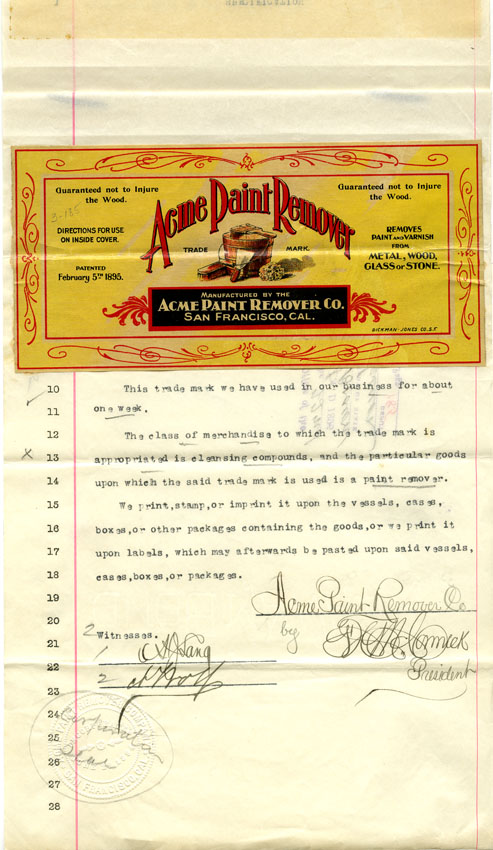 Guaranteed not to Injure
the Wood.
Guaranteed not to Injure
the Wood.
3-135
DIRECTIONS FOR USE
ON INSIDE COVER.
PATENTED
February 5TH 1895.
Acme Paint Remover
TRADE MARK.
REMOVES
PAINT AND VARNISH
FROM
METAL, WOOD,
GLASS OR STONE.
MANUFACTURED BY THE
ACME PAINT REMOVER CO.
SAN FRANCISCO, CAL.
DICKMAN-JONES CO. S.F.
10 This trade mark we have used in our business for about
11 one week.
12 The class of merchandise to which the trade mark is
x 13 appropriated is cleansing compounds, and the particular goods
14 upon which the said trade mark is used is a paint remover.
15 We print,stamp,or imprint it upon the vessels, cases,
16 boxes,or other packages containing the goods,or we print it
17 upon labels, which may afterwards be pasted upon said vessels,
18 cases,boxes,or packages.
19 Acme Paint Remover Co
20 by
President
21 2 Witnesses.
1
22
2
23
24 Corporate
25 Seal
26 SAN FRANCISCO, CAL.
27
28